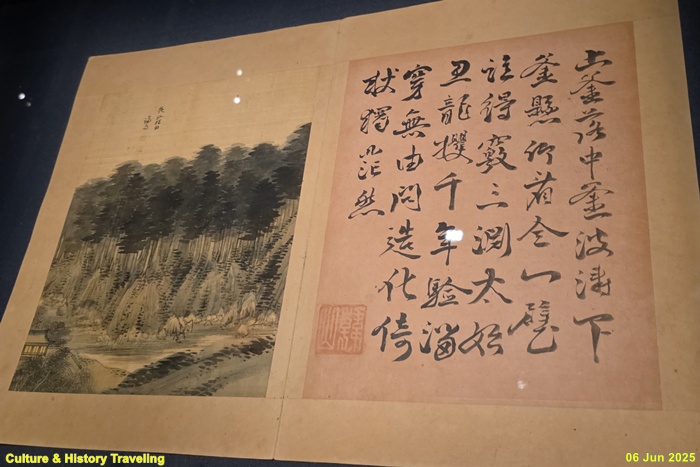 上釜落中釜波濤下
釜懸仰看全一壁
誰得竅三淵太始
思龍攫千年驗溜
穿無由問造化倚
杖獨茫然
Culture & History Traveling
06 Jun 2025